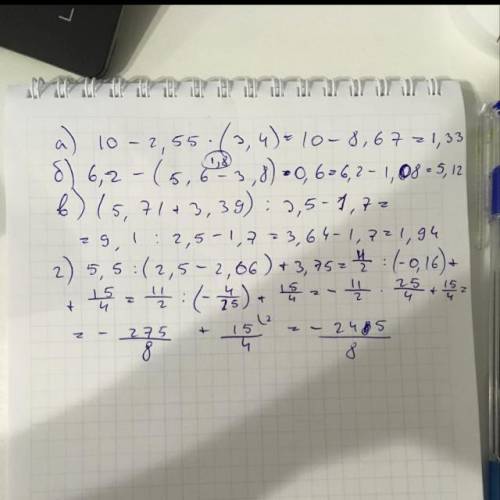 а) 10 - 2,55 · (3,4) = 10 - 8,67 = 1,33
1,8
б) 6,2 - (5,6 - 3,8) · 0,6 = 6,2 - 1,08 = 5,12
в) (5,71 + 3,39) : 2,5 - 1,7 =
= 9,1 : 2,5 - 1,7 = 3,64 - 1,7 = 1,94
г) 5,5 : (2,5 - 2,66) + 3,75 = 11/2 : (-0,16) +
+ 15/4 = 11/2 : (-4/25) + 15/4 = - 11/2 · 25/4 + 15/4 =
= - 275/8 + 15/4 (2 = - 245/8